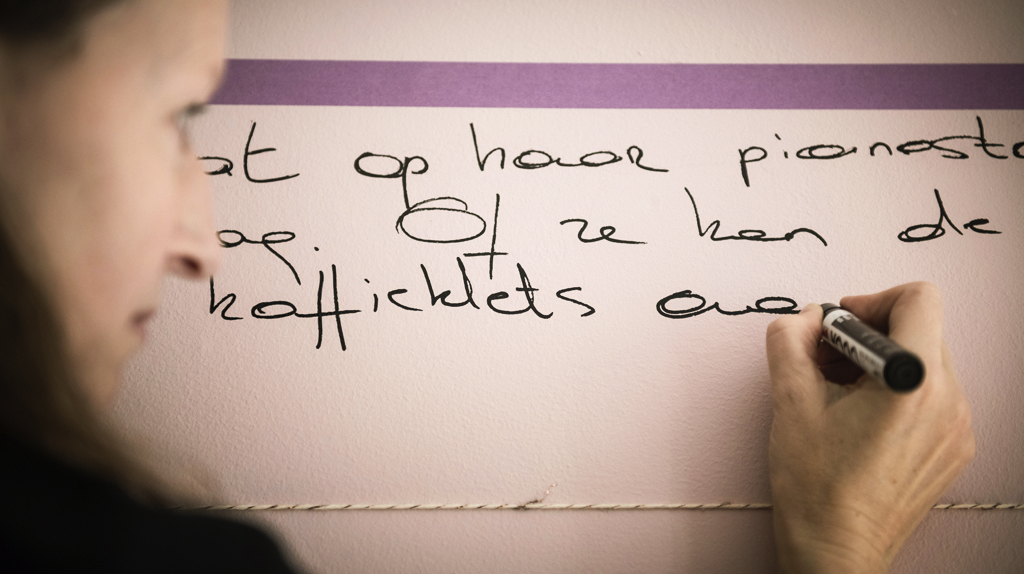 at op haar pianosto
ag. Of ze kan de
koffieklets ove